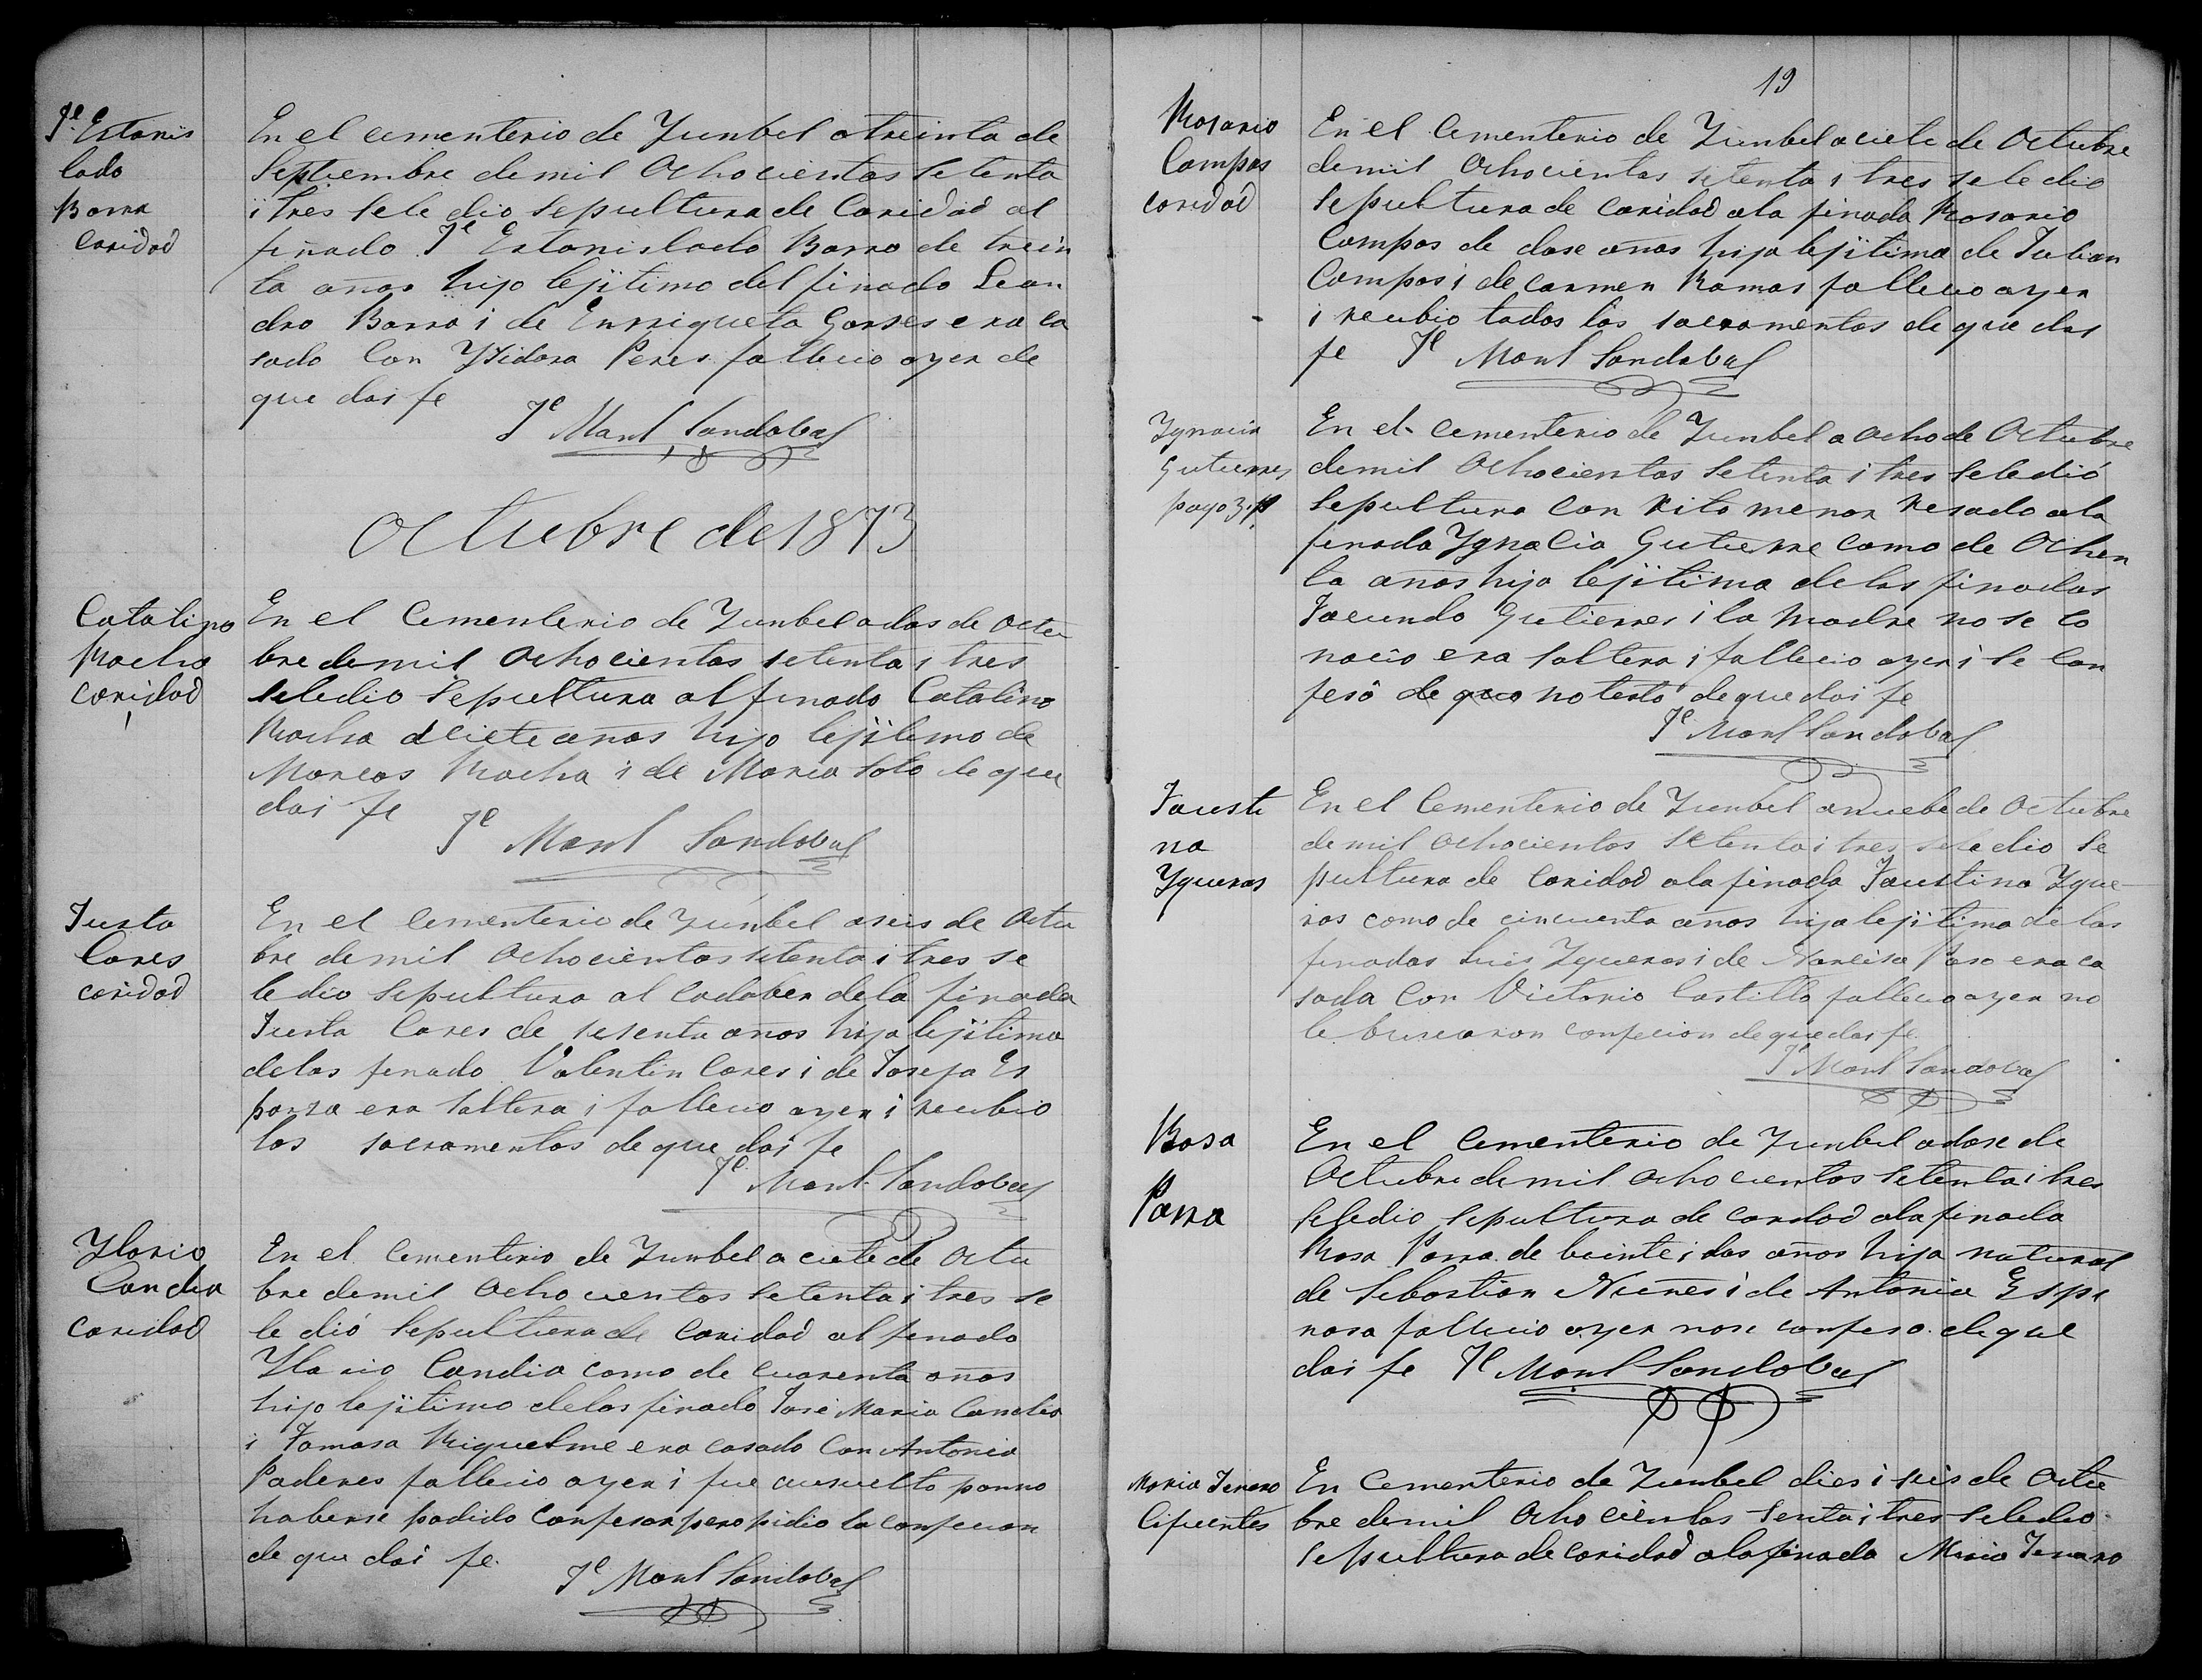 Je Estanis
lado
Barra
Caridad
En el cementerio de Yunbel a treinta de
Septiembre de mil Ochocientos Setenta
i tres Se le dio Sepultura de Caridad al
finado Je Estanislado Barra de trein
ta años hijo lejitimo del finado Lean
dro Barra i de Enrriqueta Garses era ca
sado Con Ysidora Peres fallecio ayer de
que doi fe
Je Manl Sandobal
Octubre de 1873
Catalino
Rocha
caridad
En el Cementerio de Yunbel a dos de Octu
bre de mil Ochocientos setenta i tres
se le dio Sepultura al finado Catalino
Rocha de ciete años hijo lejitimo de
Marcos Rocha i de Maria Soto de que
doi fe
Je Manl Sandobal
Justa
Lares
caridad
En el cementerio de Yunbel a seis de Octu
bre de mil Ochocientos setenta i tres se
le dio Sepultura al cadaber de la finada
Justa Lares de sesenta años hija lejitima
de los finado Valentin Lares i de Josefa Es
parza era Soltera i fallecio ayer i recibio
los sacramentos de que doi fe
Je Manl Sandobal
Ylario
Candia
Caridad
En el Cementerio de Yunbel a ciete de Octu
bre de mil Ochocientos Setenta i tres se
le dió Sepultura de Caridad al finado
Ylario Candia como de cuarenta años
hijo lejitimo de los finado José Maria Candia
i Tomasa Riquelme era casado Con Antonia
Paderes fallecio ayer i fue ausuelto por no
haberse podido Confesar pero pidio la confecion
de que doi fe.
Je Manl Sandobal
19
Rosario
Campos
caridad
En el Cementerio de Yunbel a ciete de Octubre
de mil Ochocientos setenta i tres se le dio
Sepultura de Caridad a la finada Rosario
Campos de dose años hija lejitima de Julian
Campos i de Carmen Ramos fallecio ayer
i recibio todos los sacramentos de que doi
fe Je Manl Sandobal
Ygnacia
Gutierres
pago 3 p
En el Cementerio de Yunbel a Ocho de Octubre
de mil Ochocientos Setenta i tres Se le dió
Sepultura Con rito menor resado a la
finada Ygnacia Gutierre como de Ochen
ta años hija lejitima de los finados
Facundo Gutierres i la Madre no se co
nocio era Soltera i fallecio ayer i Se Con
fesó de que no testo de que doi fe
Je Manl Sandobal
Fausti
na
Ygueras
En el Cementerio de Yunbel a nuebe de Octubre
de mil Ochocientos Setenta i tres se le dio Se
pultura de Caridad a la finada Faustina Ygue
ras como de cincuenta años hija lejitima de los
finados Luis Ygueras i de Narcisa Paso era ca
sada Con Victorio Castillo fallecio ayer no
le buscaron confecion de que doi fe
Je Manl Sandobal
Rosa
Parra
En el Cementerio de Yunbel a dose de
Octubre de mil Ochocientos Setenta i tres
Se le dio Sepultura de caridad a la finada
Rosa Parra de beinte i dos años hija natural
de Sebastian Nuñes i de Antonia Espi
nosa fallecio ayer no se confeso. de que
doi fe Je Manl Sandobal
Maria Jenaro
Cifuentes
En Cementerio de Yunbel dies i seis de Octu
bre de mil Ochocientos Senta i tres Se le dio
Sepultura de Caridad a la finada Maria Jenaro